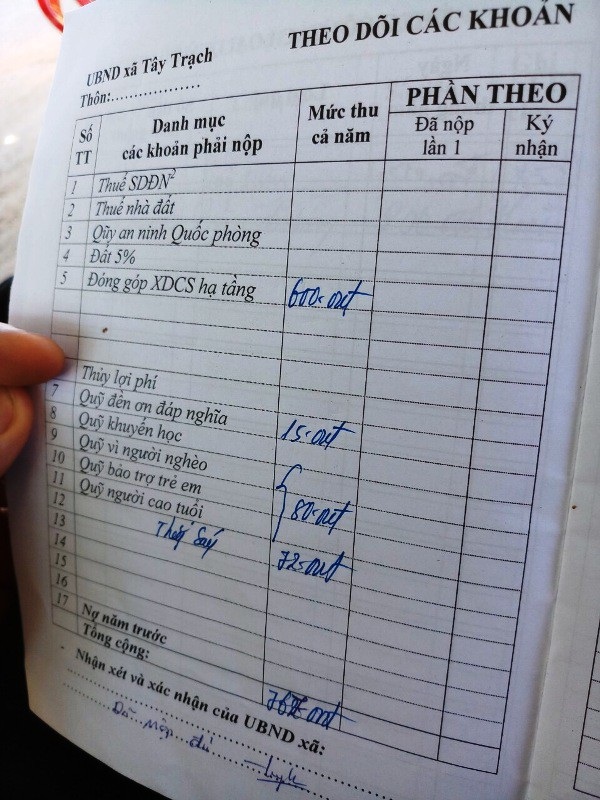 UBND xã Tây Trạch
THEO DÕI CÁC KHOẢN
Thôn:..................
Số TT
Danh mục các khoản phải nộp
Mức thu cả năm
PHẦN THEO
Đã nộp lần 1
Ký nhận
1 Thuế SDĐN2
2 Thuế nhà đất
3 Qũy an ninh Quốc phòng
4 Đất 5%
5 Đóng góp XDCS hạ tầng 600
Thủy lợi phí
7 Quỹ đền ơn đáp nghĩa 15
8 Quỹ khuyến học
9 Quỹ vì người nghèo
10 Quỹ bảo trợ trẻ em 80
11 Quỹ người cao tuổi
12 72
13
14
15
16
17
Nợ năm trước
Tổng cộng:
- Nhận xét và xác nhận của UBND xã:
Đã nộp đủ